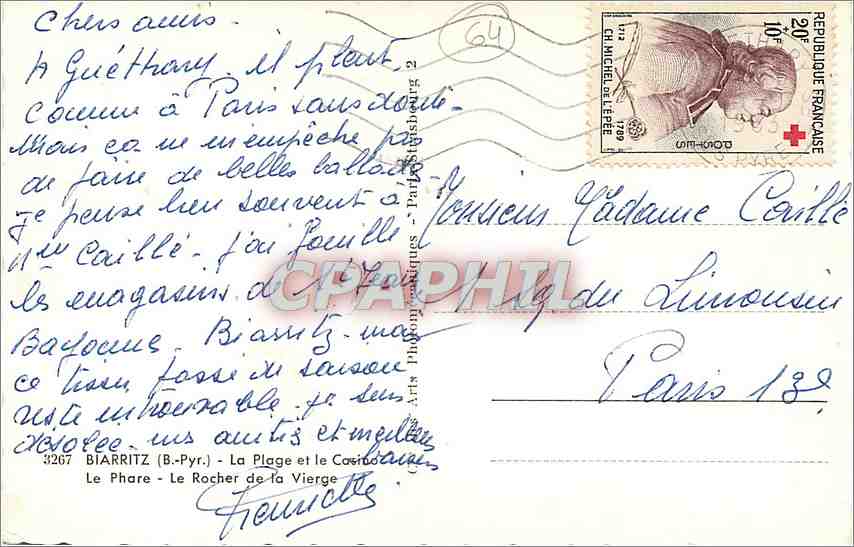 Chers amis.
A Guéthary. il pleut.
Comme à Paris sans doute.
Mais ça ne m'empêche pas
de faire de belles ballades
je pense bien souvent à
Mme Caillé. j'ai fouillé
les magasins de St Jean
Bayonne. Biarritz. mais
ce tissu passé de saison
reste introuvable. je suis
désolée. mes amitiés et meilleurs
baisers
3267 BIARRITZ (B.-Pyr.) - La Plage et le Casino
Le Phare - Le Rocher de la Vierge
Arts Photomécaniques - Paris-Strasbourg 2
64
RÉPUBLIQUE FRANÇAISE
20F + 10F
1712
CH. MICHEL DE L'ÉPÉE
1789
POSTES
Monsieur Madame Caillé
1 Sq. du Limousin
Paris 13e
CPAPHIL